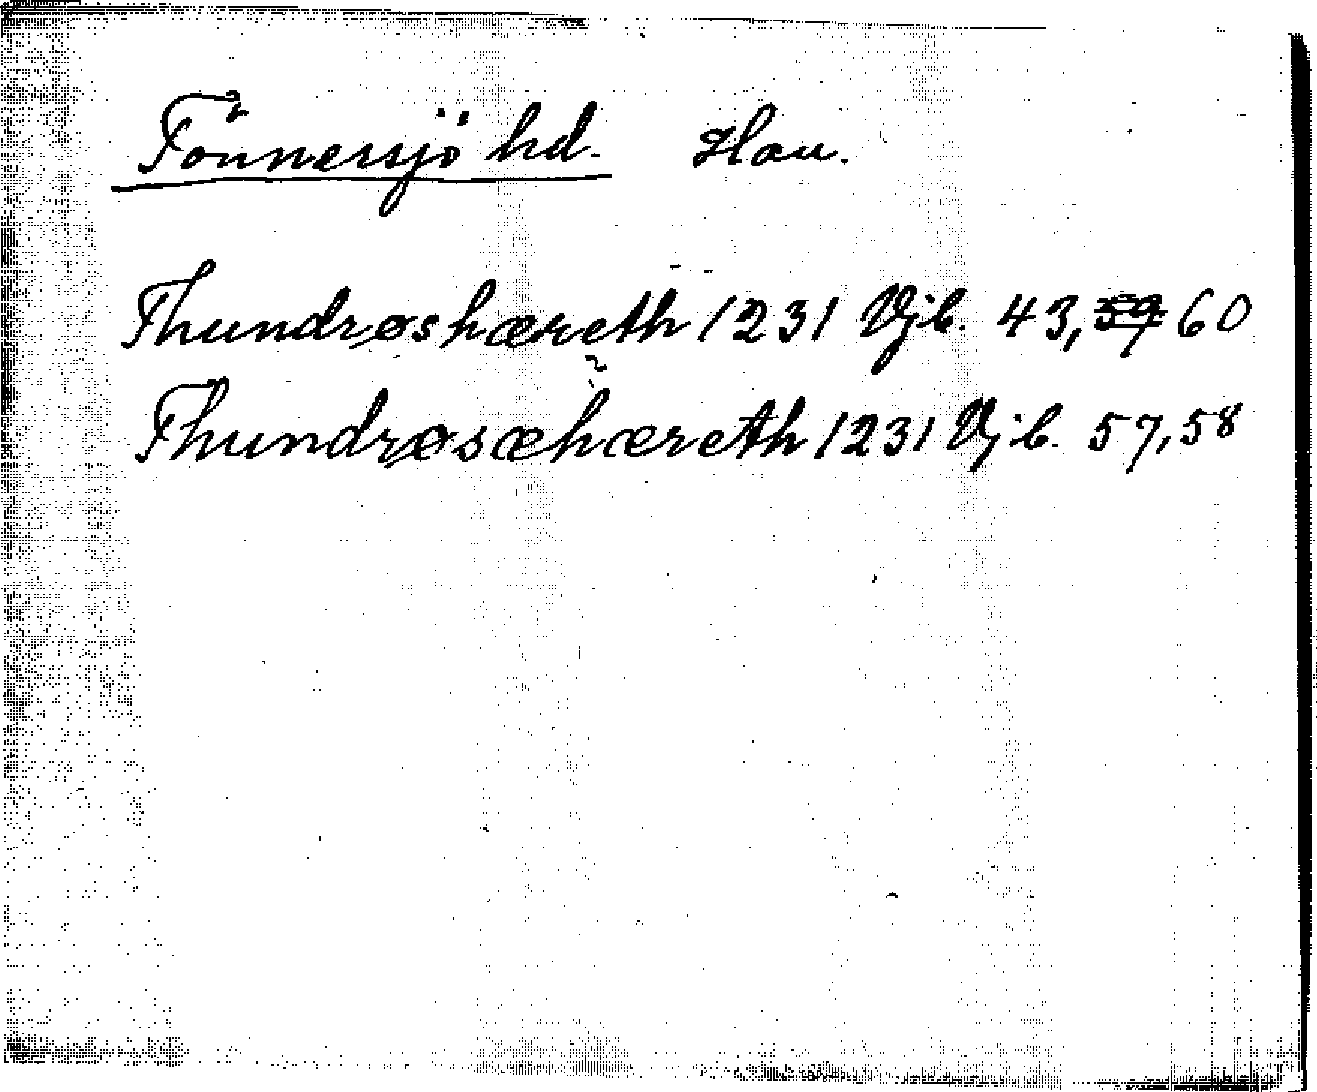 Tönnersjö hd. Hall.
Thundrøshæreth 1231 Vjb. 43, 59 60
?
Thundrøsæhæreth 1231 Vjb. 57, 58